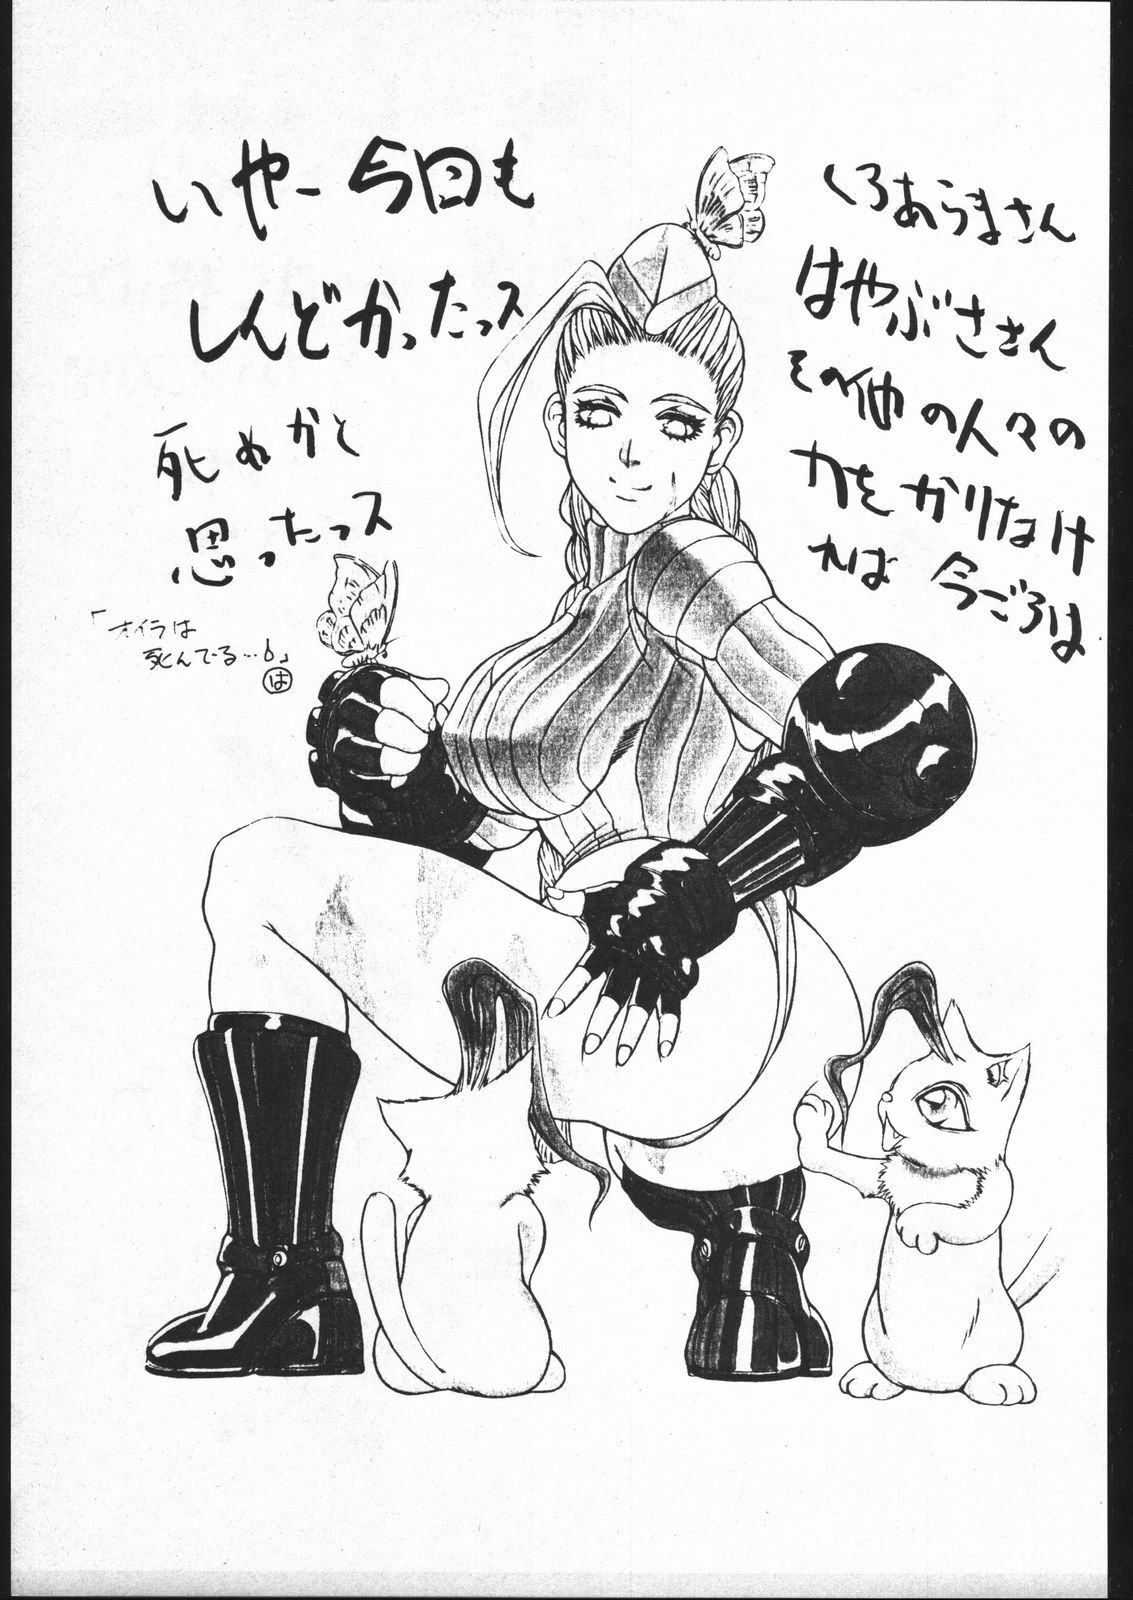 いやー今回も
しんどかったっス
死ぬかと
思ったっス
「オイラは
死んでる…よ」
は
くろあらまさん
はやぶささん
その他の人々の
力をかりなけ
れば 今ごろは